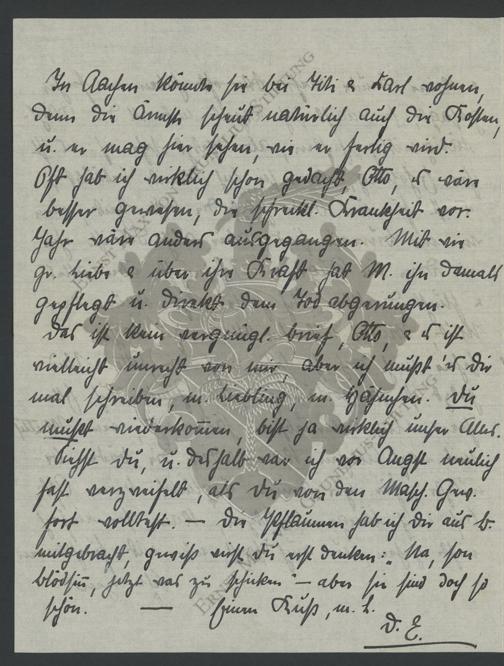 In Aachen könnte sie bei Titi & Karl wohnen,
denn die Ärmste scheut natürlich auch die Kosten,
u. er mag hier sehen, wie er fertig wird.
Oft hab ich wirklich schon gedacht, Otto, es wäre
besser gewesen, die schreckl. Krankheit vor.
Jahr wäre anders ausgegangen. Mit wie
gr. Liebe & über ihre Kraft hat M. ihn damals
gepflegt u. direkt dem Tod abgerungen.
Das ist kein vergnügl. brief, Otto, & es ist
vielleicht unrecht von mir, aber ich mußt's dir
mal schreiben, m. Liebling, m. Häschen. Du
mußt wiederkommen, bist ja wirklich unser Alles.
Siehst Du, u. deshalb war ich vor Angst neulich
fast verzweifelt, als Du von den Masch. Gew.
fort wolltest. — Die Pflaumen hab ich dir aus B.
mitgebracht, gewiß wirst du erst denken: "Na, son
blödsinn, jetzt was zu schicken" — aber sie sind doch so
schön. — Einen Kuß, m. L.
D. E.